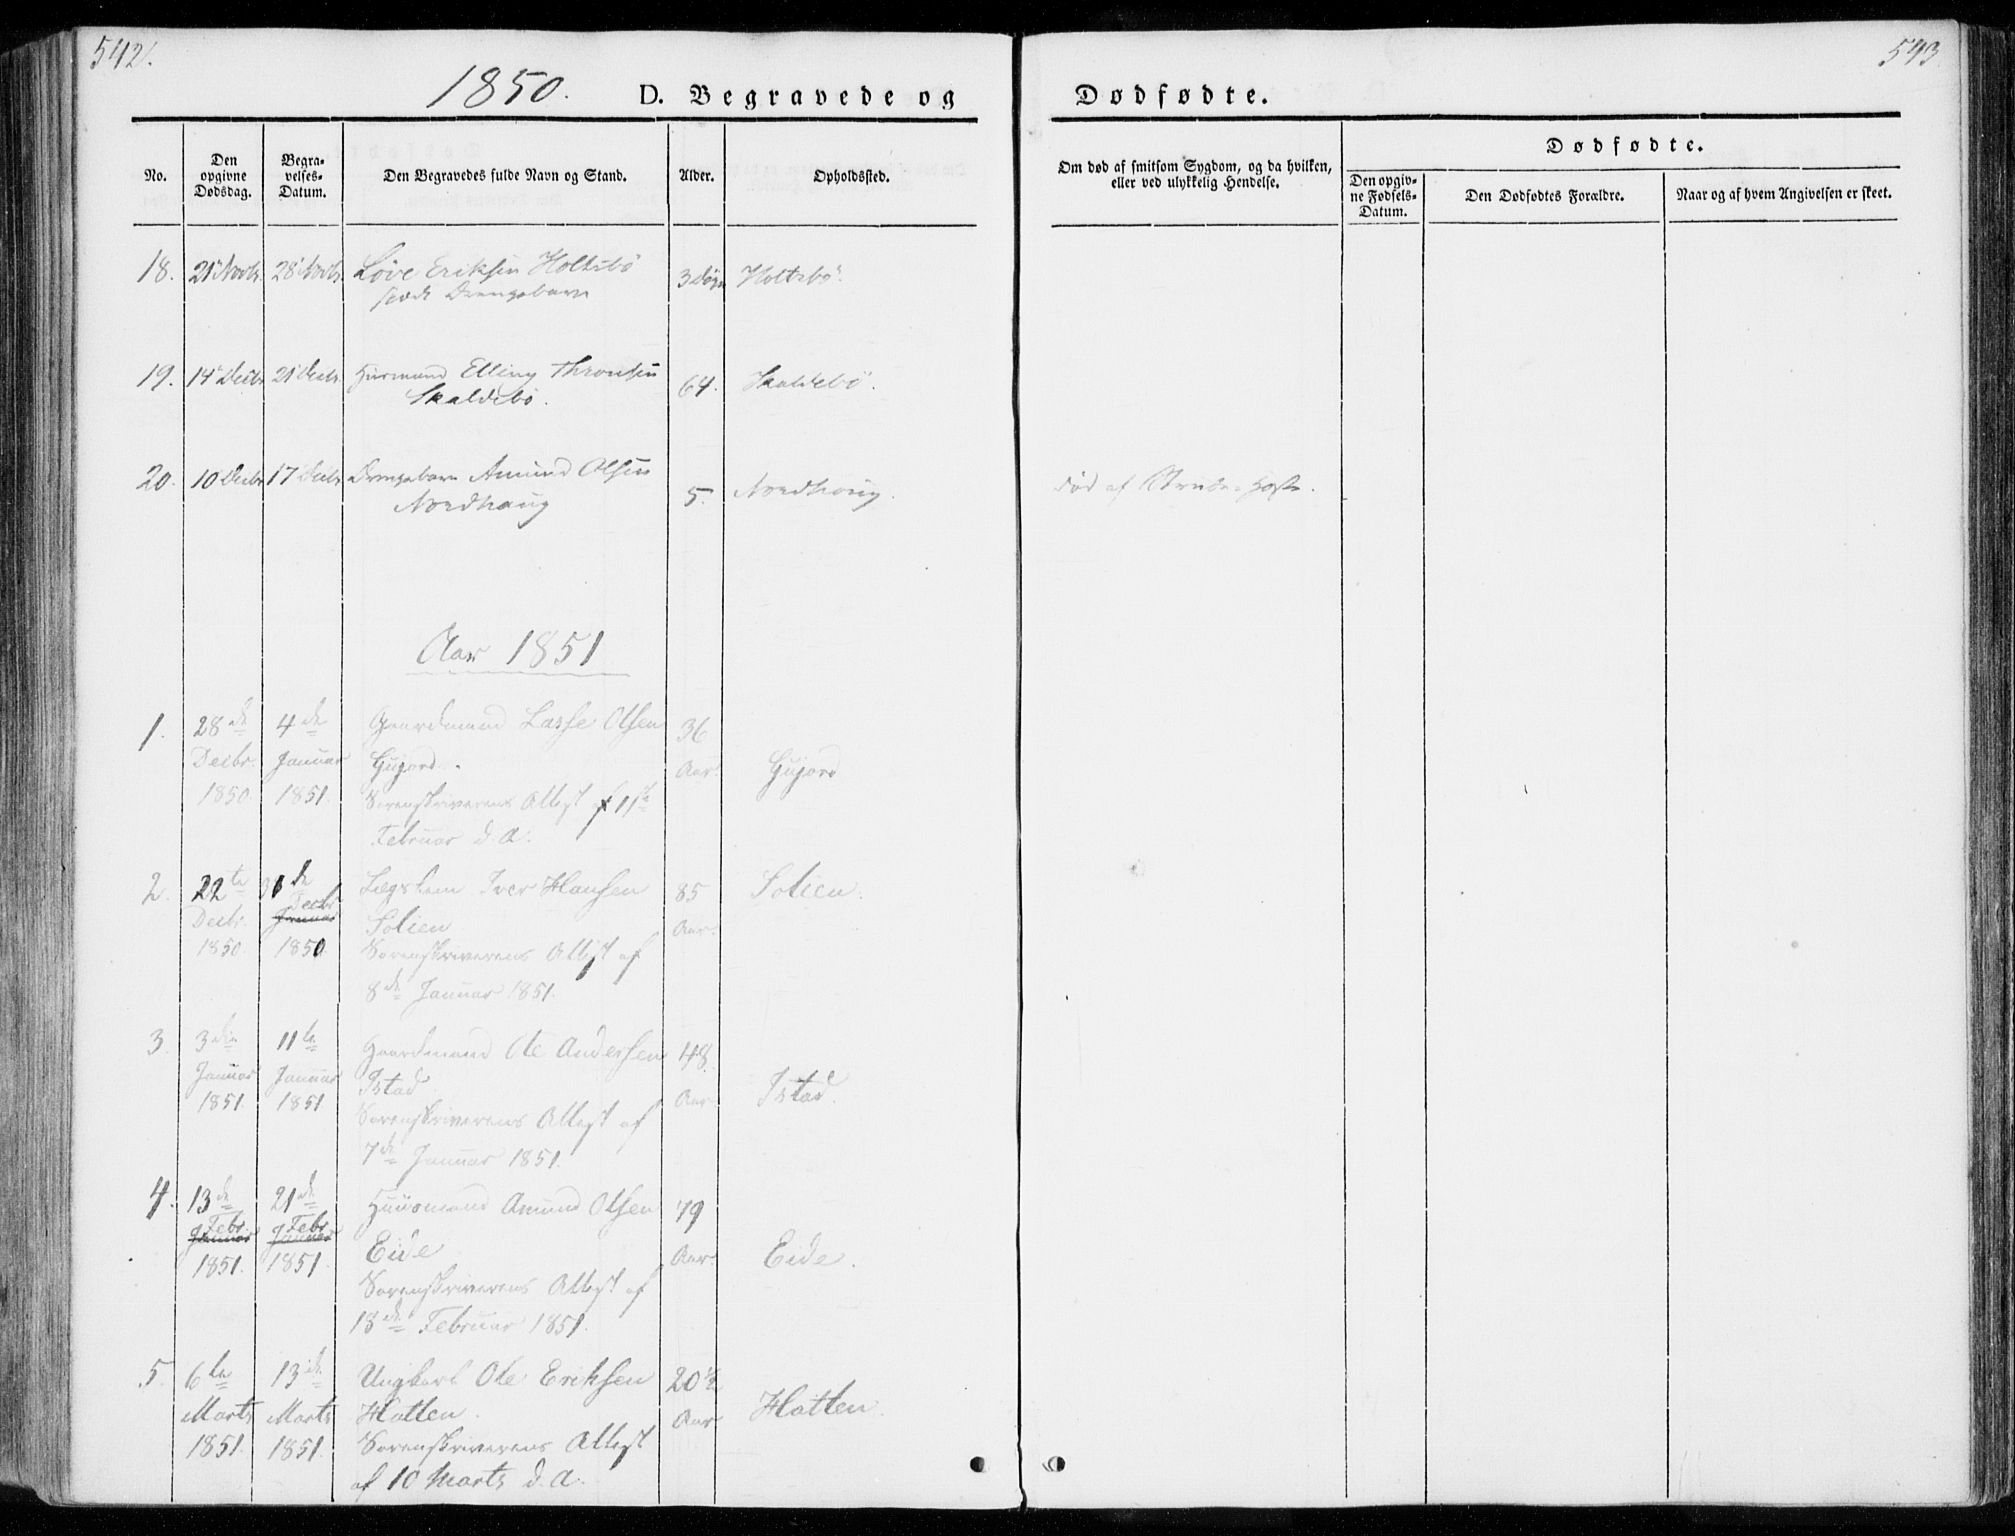 542.
543
1850.
D. Begravede og
Dødfødte.
No.
Den opgivne Dødsdag.
Begravelses-Datum.
Den Begravedes fulde Navn og Stand.
Alder.
Opholdssted.
Om død af smitsom Sygdom, og da hvilken,
eller ved ulykkelig Hendelse.
Dødfødte.
Den opgivne Fødsels-Datum.
Den Dødfødtes Forældre.
Naar og af hvem Angivelsen er skeet.
18. 21 Novbr 28 Novbr Love Eriksen Holtebø 3 Døgn Holtebø.
spædt Drengebarn
19. 14 Decbr 21 Decbr Huusmand Elling Thronsen 64. Skaldebø.
Skaldebø.
20. 10 Decbr 17 Decbr Drengebarn Amund Olsen 5. Nordhoug. død af Strube-Hoste.
Nordhaug
Aar 1851
1. 28de 4de Gaardmand Lasse Olsen 36
Decbr. Januar Gujord. Aar. Gujord
1850. 1851. Sorenskriverens Attest af 11te
Februar d. A.
2. 22te de Lægslem Iver Hansen 85 Solien.
Decbr. Decbr Januar Solien Aar.
1850. 1850. Sorenskriverens Attest af
8de Januar 1851.
3. 3die 11te Gaardmand Ole Andersen 48.
Januar Januar Istad Aar Istad.
1851. 1851. Sorenskriverens Attest af
7de Januar 1851.
4. 13de 21de Huusmand Amund Olsen 79
Febr. Januar Febr Januar Eide Aar. Eide.
1851. 1851. Sorenskriverens Attest af
18de Februar 1851.
5. 6te 13de Ungkarl Ole Eriksen 20½
Marts Marts Hatten. Aar Hatten.
1851. 1851. Sorenskriverens Attest
af 10 Marts d. A.